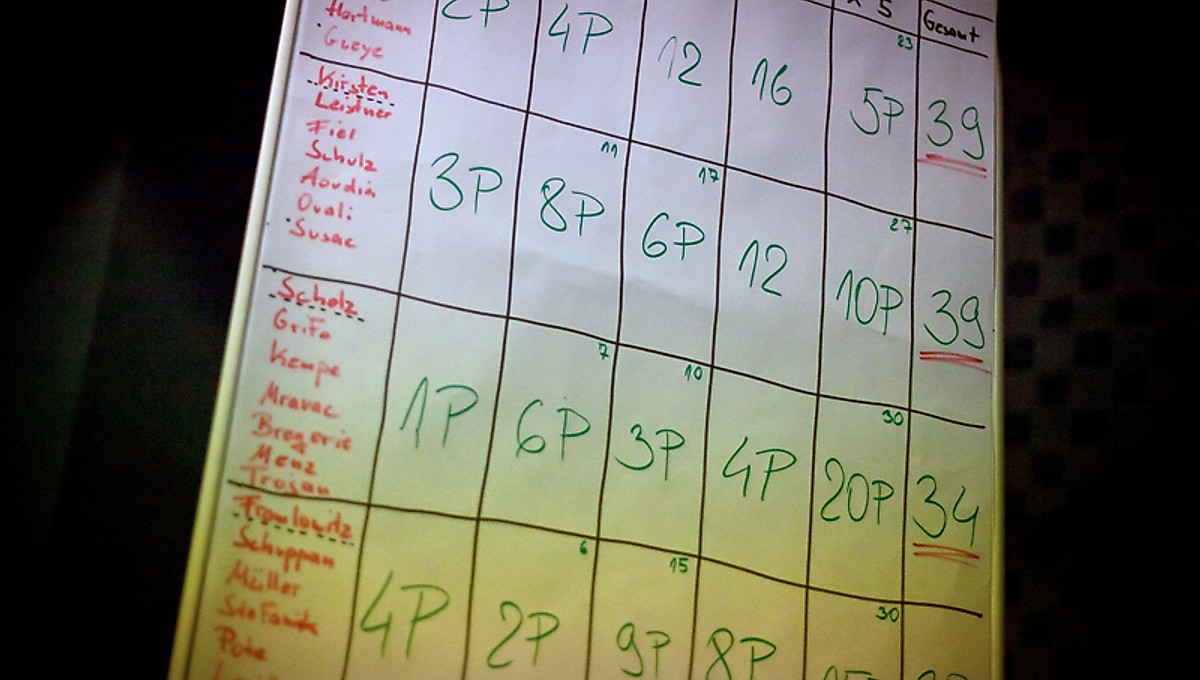 x 5 Gesamt
Hartmann
Gueye
2P 4P 12 16 23 5P 39
Kirsten
Leistner
Fiel
Schulz
Aoudia
Ouali
Susac
3P 11 8P 17 6P 12 27 10P 39
Scholz
Grifo
Kempe
Mravac
Bregerie
Menz
Trojan
1P 7 6P 10 3P 4P 30 20P 34
Fromlowitz
Schuppan
Müller
Stefaniks
Pote
4P 6 2P 15 9P 8P 30